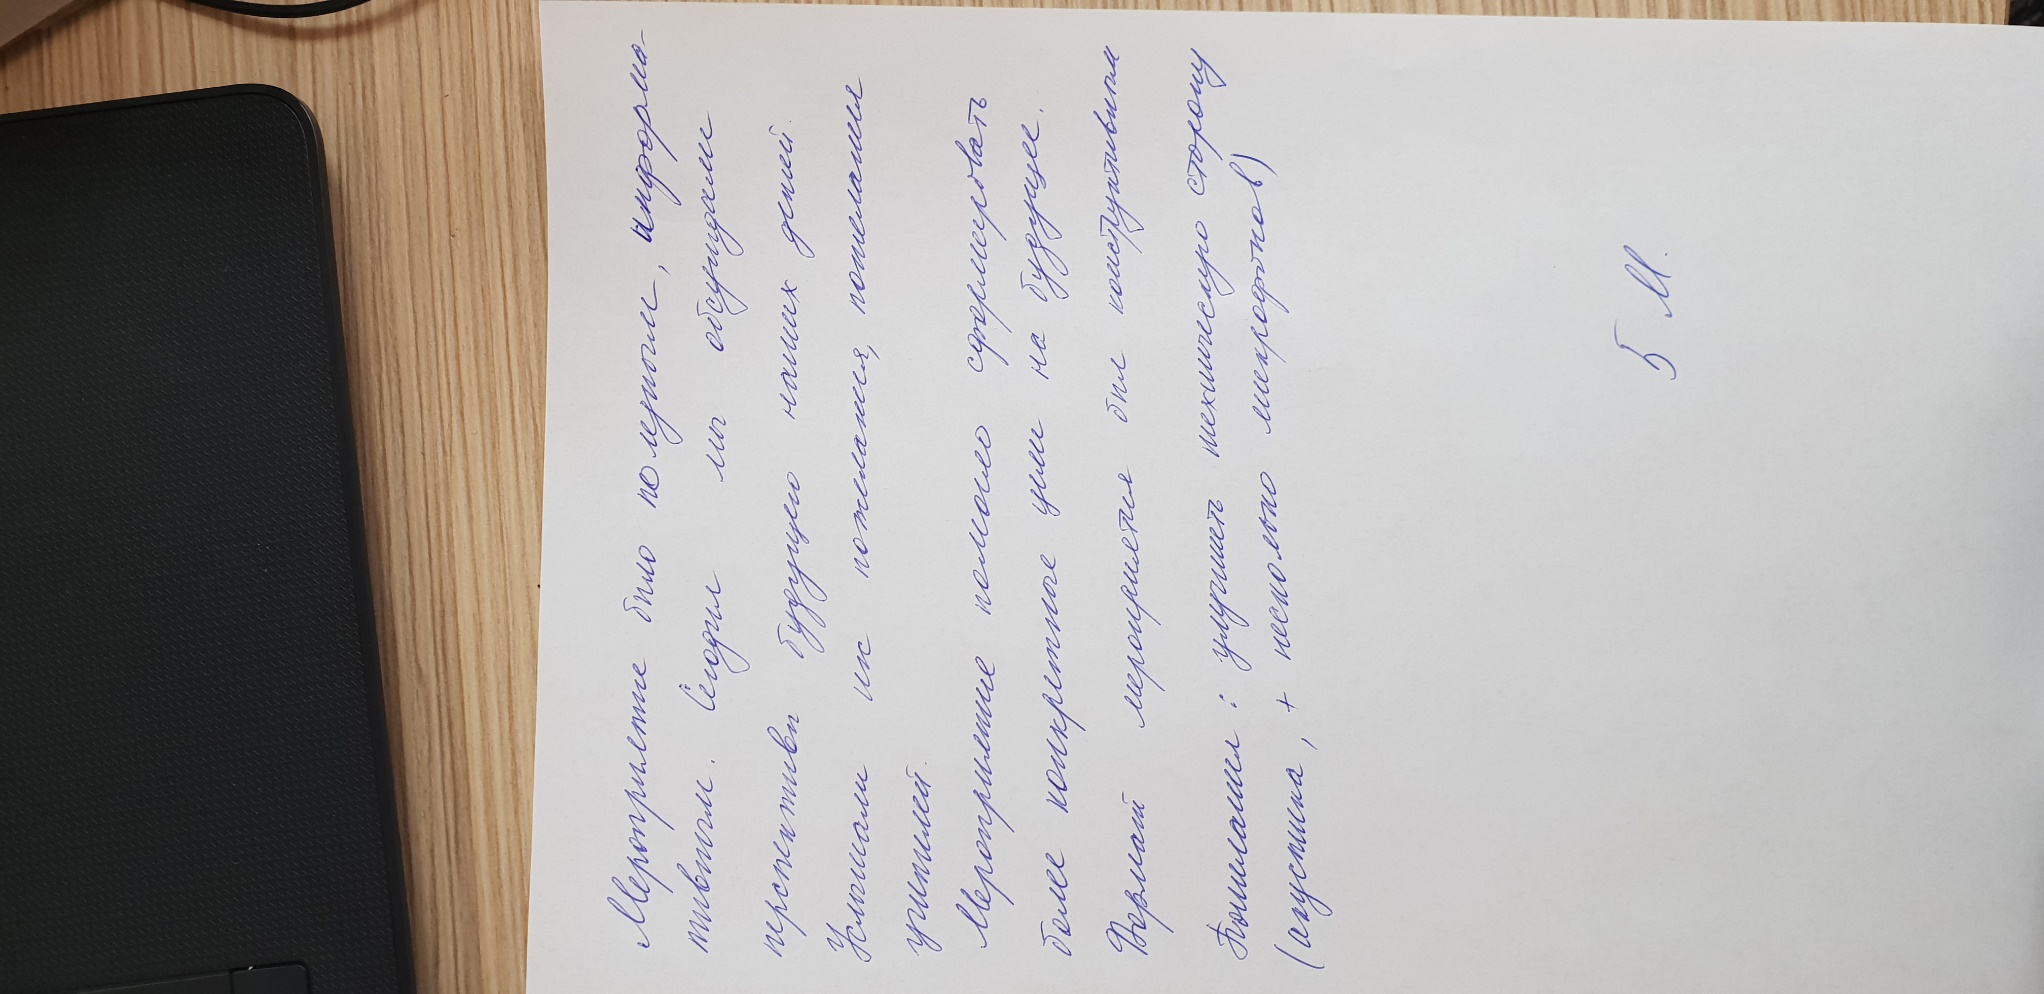 Мероприятие было полезным, информа-
тивным. Сегодня мы обсуждали
перспективы будущего наших детей.
Услышали их пожелания, пожелания
учителей.
Мероприятие помогло сформировать
более конкретные цели на будущее.
Формат мероприятия был конструктивным
Пожелание: улучшить техническую сторону
(акустика, + несколько микрофонов)
Б М.